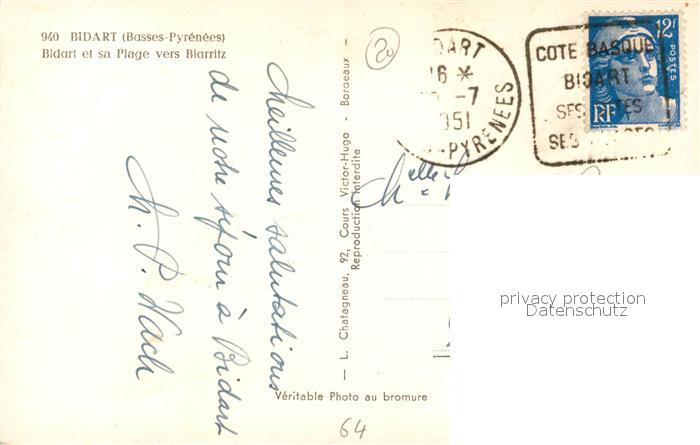 940 BIDART (Basses-Pyrénées)
Bidart et sa Plage vers Biarritz
Meilleures salutations
de notre séjour à Bidart
— L. Chatagneau, 92, Cours Victor-Hugo - Bordeaux —
Reproduction interdite
Véritable Photo au bromure
64
20
BIDART
16 *
-7
1951
-PYRENEES
COTE BASQUE
BIDART
SES
SES
12f
POSTES
RF
Melle
privacy protection
Datenschutz